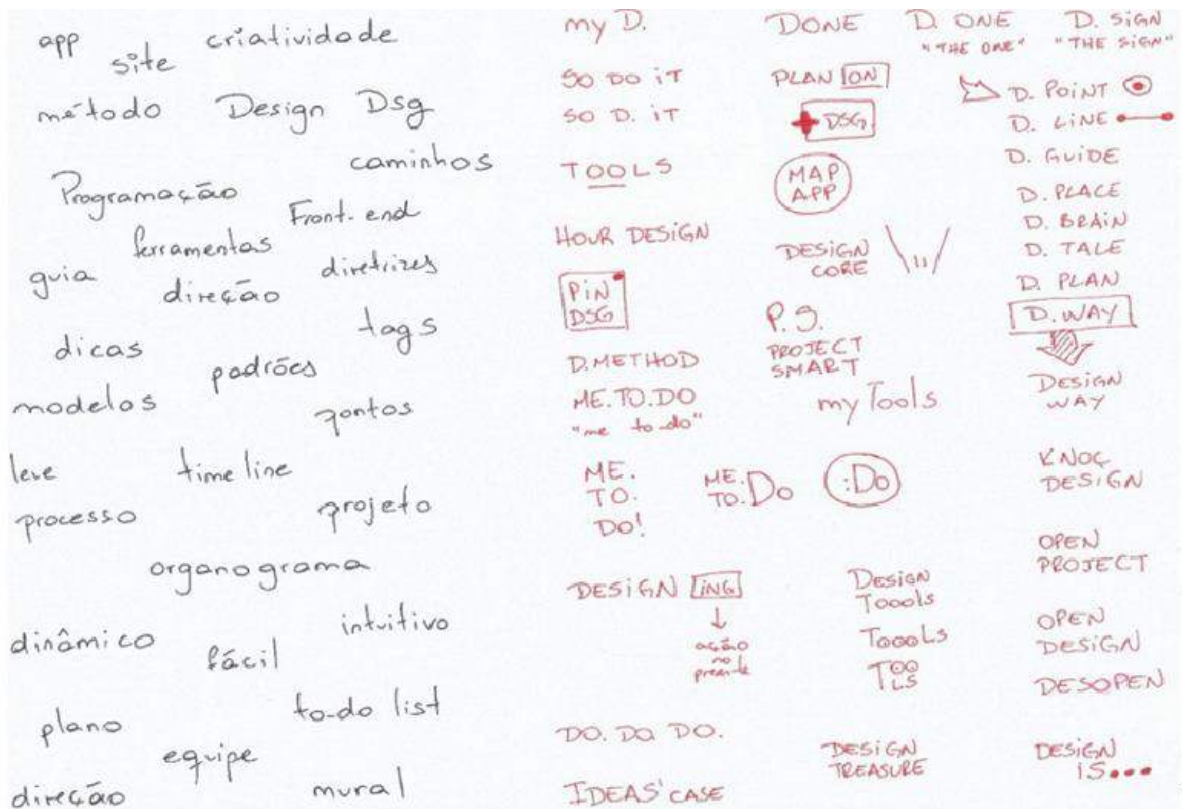 app
criatividade
site
método Design Dsg
caminhos
Programação
Front-end
ferramentas
guia
diretrizes
direção
tags
dicas
padrões
modelos
pontos
leve
timeline
processo
projeto
organograma
dinâmico
intuitivo
fácil
plano
to-do list
equipe
direção
mural
my D.
SO DO iT
SO D. iT
TOOLS
HOUR DESIGN
PiN
DSG
D.METHOD
ME.TO.DO
"me to-do"
ME.
TO.
DO!
ME.
TO.Do
:Do
DESIGN ING
ação
no
presente
DO. DO. DO.
IDEAS' CASE
DONE
PLAN ON
+DSG
MAP
APP
DESIGN
CORE
P.S.
PROJECT
SMART
my Tools
DESIGN
Toools
ToooLs
TOO
LS
DESIGN
TREASURE
D. ONE
"THE ONE"
D. SiGN
"THE SiGN"
D. POiNT
D. LiNE
D. GUiDE
D. PLACE
D. BRAiN
D. TALE
D. PLAN
D. WAY
DESIGN
WAY
KNOC
DESIGN
OPEN
PROJECT
OPEN
DESIGN
DESOPEN
DESIGN
IS...